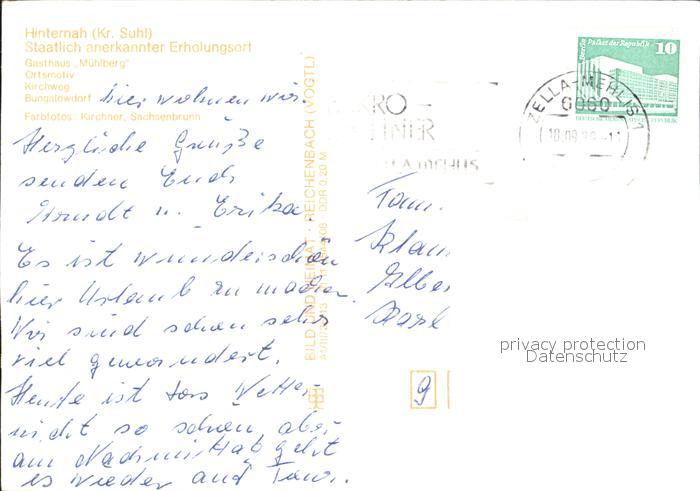 Hinternah (Kr. Suhl)
Staatlich anerkannter Erholungsort
Gasthaus „Mühlberg"
Ortsmotiv
Kirchweg
Bungalowdorf hier wohnen wir.
Farbfotos: Kirchner, Sachsenbrunn
Herzliche Grüße
senden Euch
Arndt u. Erika
Es ist wunderschön
hier Urlaub zu machen.
Wir sind schon sehr
viel gewandert.
Heute ist das Wetter
nicht so schön, aber
am Nachmittag geht
es wieder auf Tour.
BILD UND HEIMAT REICHENBACH (VOGTL)
DDR 0,20 M
Palast der Republik
10
ZELLA-MEHLIS 1
6060
Fam.
9
privacy protection
Datenschutz